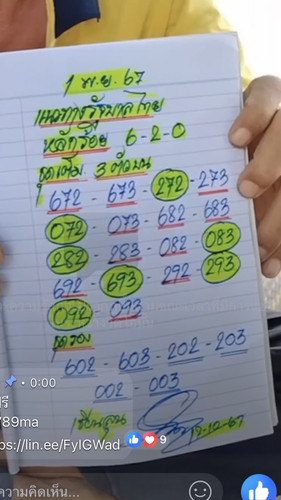 1 พ.ย. 67
แนวทางรัฐบาลไทย
หลักร้อย 6-2-0
ชุดเต็ม 3 ตัวบน
672 - 673 - 272 - 273
072 - 073 - 682 - 683
282 - 283 - 082 - 083
692 - 693 - 292 - 293
092 093
ชุดรอง
602 - 603 - 202 - 203
002 - 003
12-10-67
0:00
รี
789ma
ps://lin.ee/FylGWad
9
ความคิดเห็น...